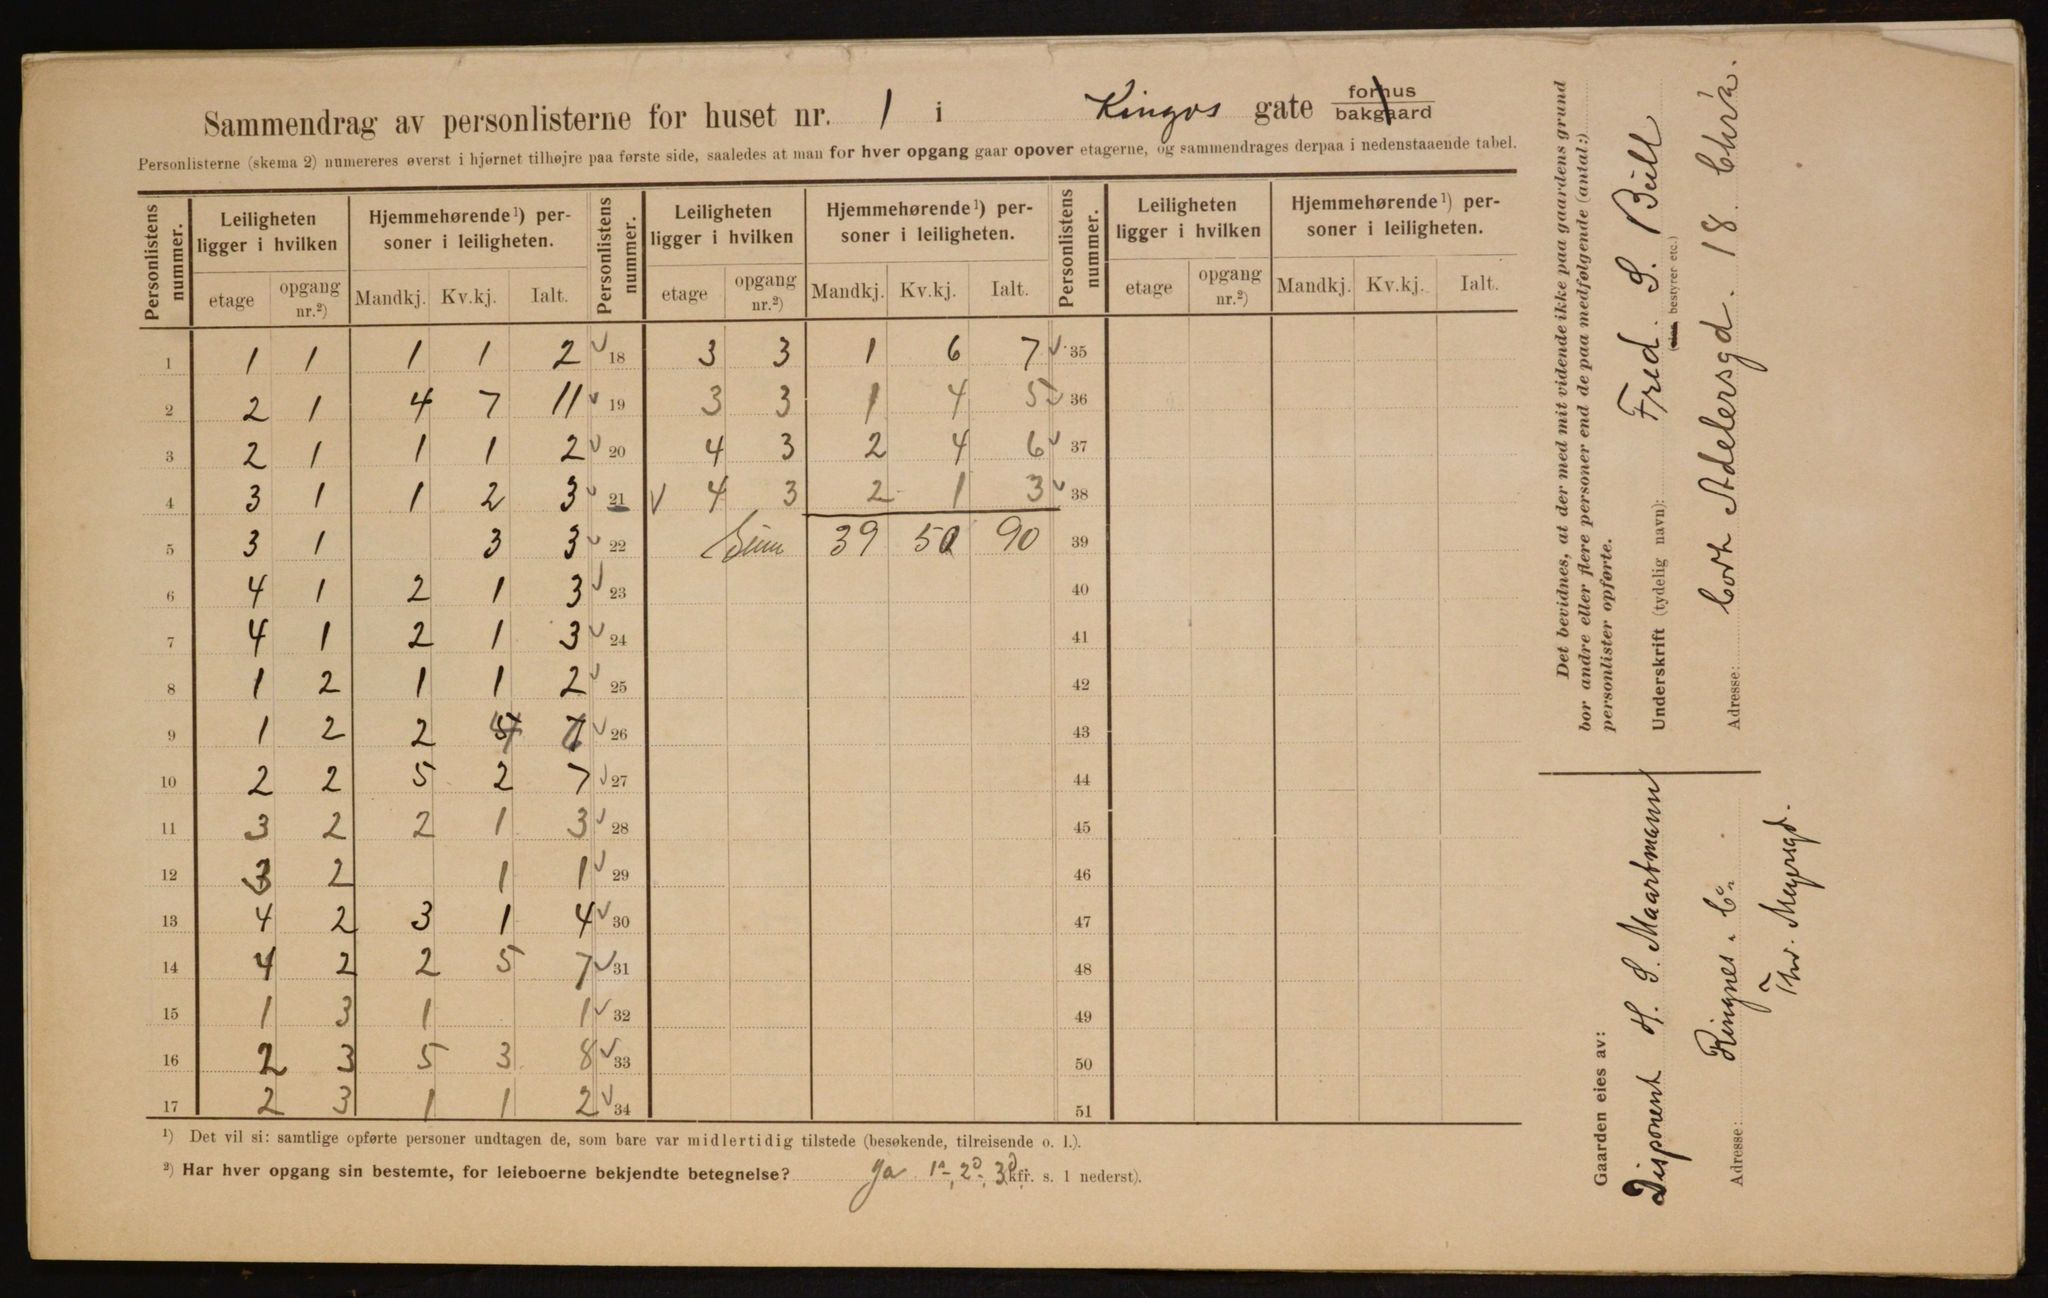 Sammendrag av personlisterne for huset nr. 1 i Kingos gate forhus bakgaard
Personlisterne (skema 2) numereres øverst i hjørnet tilhøjre paa første side, saaledes at man for hver opgang gaar opover etagerne, og sammendrages derpaa i nedenstaaende tabel.
Personlistens nummer. Leiligheten ligger i hvilken Hjemmehørende¹) personer i leiligheten. Personlistens nummer. Leiligheten ligger i hvilken Hjemmehørende¹) personer i leiligheten. Personlistens nummer. Leiligheten ligger i hvilken Hjemmehørende¹) personer i leiligheten.
etage opgang nr.²) Mandkj. Kv.kj. Ialt. etage opgang nr.²) Mandkj. Kv.kj. Ialt. etage opgang nr.²) Mandkj. Kv.kj. Ialt.
1 1 1 1 1 2 ✓ 18 3 3 1 6 7 ✓ 35
2 2 1 4 7 11 ✓ 19 3 3 1 4 5 ✓ 36
3 2 1 1 1 2 ✓ 20 4 3 2 4 6 ✓ 37
4 3 1 1 2 3 ✓ 21 ✓ 4 3 2 1 3 ✓ 38
5 3 1 3 3 ✓ 22 Sum 39 50 90 39
6 4 1 2 1 3 ✓ 23 40
7 4 1 2 1 3 ✓ 24 41
8 1 2 1 1 2 ✓ 25 42
9 1 2 2 ✓ 26 43
10 2 2 5 2 7 ✓ 27 44
11 3 2 2 1 3 ✓ 28 45
12 3 2 1 1 ✓ 29 46
13 4 2 3 1 4 ✓ 30 47
14 4 2 2 5 7 ✓ 31 48
15 1 3 1 1 ✓ 32 49
16 2 3 5 3 8 ✓ 33 50
17 2 3 1 1 2 ✓ 34 51
¹) Det vil si: samtlige opførte personer undtagen de, som bare var midlertidig tilstede (besøkende, tilreisende o. l.).
²) Har hver opgang sin bestemte, for leieboerne bekjendte betegnelse? Ja 1ª, 2ᵈ, 3ᵈ (kfr. s. 1 nederst).
Det bevidnes, at der med mit vidende ikke paa gaardens grund
bor andre eller flere personer end de paa medfølgende (antal:)
personlister opførte.
Underskrift (tydelig navn): Fred. S. Bull
(eier, bestyrer etc.)
Adresse: Cort Adelersgd. 18 Chra.
Gaarden eies av:
Disponent H. S. Maartmann
Adresse: Ringnes & Co.
Thv. Meyersgd.